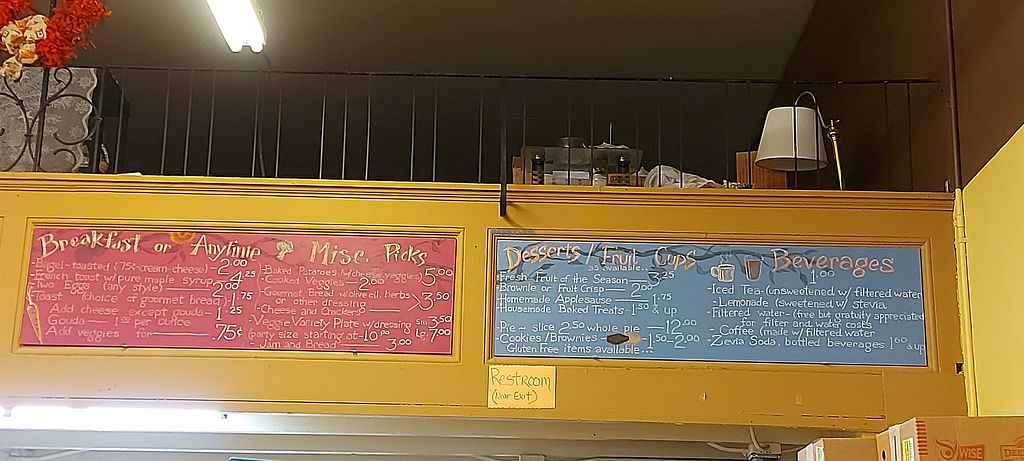 Breakfast or Anytime
-Bagel-toasted (75¢-cream-cheese)-2.00
-French toast w/ pure maple syrup 4.25
-Two Eggs (any style) 2.00
Toast (choice of gourmet bread) 1.75
Add cheese except gouda- 1.25
Gouda 1.25 per ounce
Add veggies for 75¢
Misc. Picks
-Baked Potatoes (w/cheese, veggies) 5.00
-Cooked Veggies 2.00
-Gourmet Bread w/olive oil, herbs
or other dressing 3.50
-Cheese and Crackers
-Veggie Variety Plate w/dressing sm 3.50
(party size starting at-10.00 lg 7.00
- Jam and Bread 3.00
Desserts / Fruit Cups
as available...
-Fresh Fruit of the Season 3.25
-Brownie or Fruit Crisp 2.00
Homemade Applesauce 1.75
Housemade Baked Treats-1.50 & up
-Pie- slice 2.50 whole pie 12.00
-Cookies/Brownies 1.50-2.00
Gluten Free items available...
Beverages
1.00
-Iced Tea-(unsweetened w/ filtered water
- Lemonade (sweetened w/ stevia
-Filtered water-(free but gratuity appreciated
for filter and water costs
-Coffee (made w/ filtered water
-Zevia Soda, bottled beverages 1.60 & up
Restroom
(Near Exit)
WISE